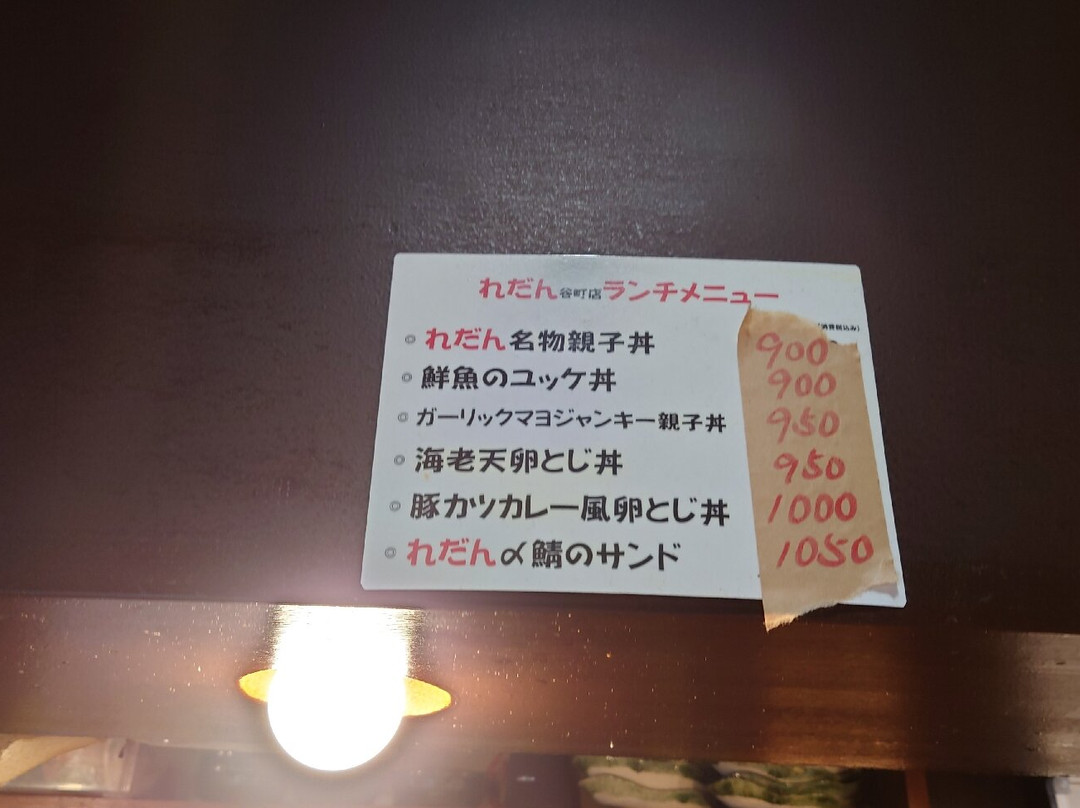 れだん谷町店ランチメニュー
(消費税込み)
◎ れだん名物親子丼 900
◎ 鮮魚のユッケ丼 900
◎ ガーリックマヨジャンキー親子丼 950
◎ 海老天卵とじ丼 950
◎ 豚カツカレー風卵とじ丼 1000
◎ れだん〆鯖のサンド 1050